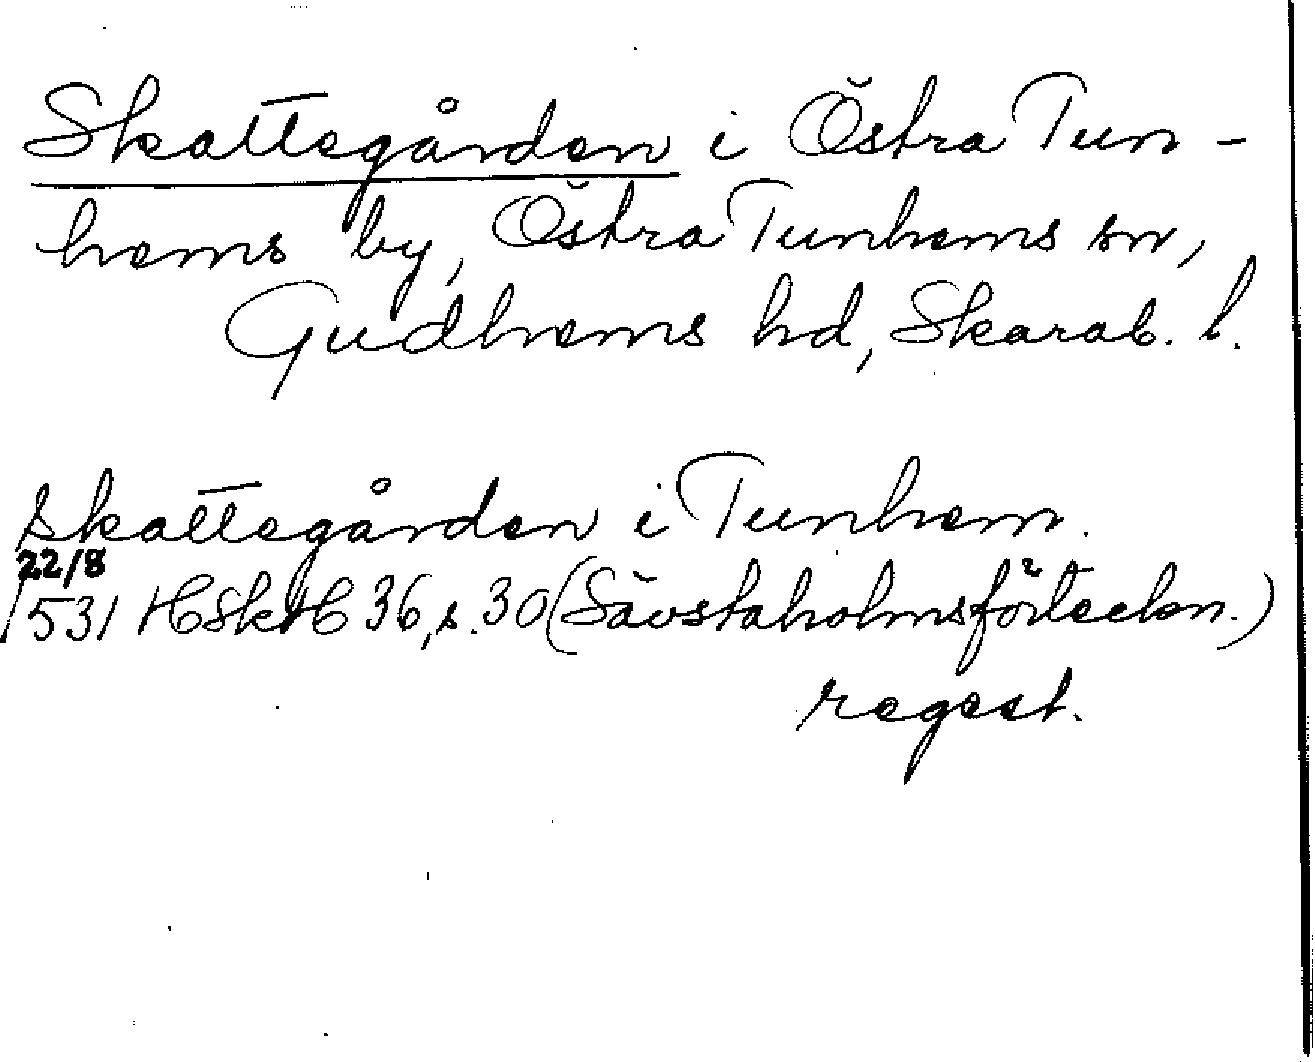 Skattegården i Östra Tun-
hems by, Östra Tunhems sn,
Gudhems hd, Skarab. l.
Skattegården i Tunhem.
22/8
1531 HSkH 36, s. 30 (Sävstaholmsförteckn.)
regest.